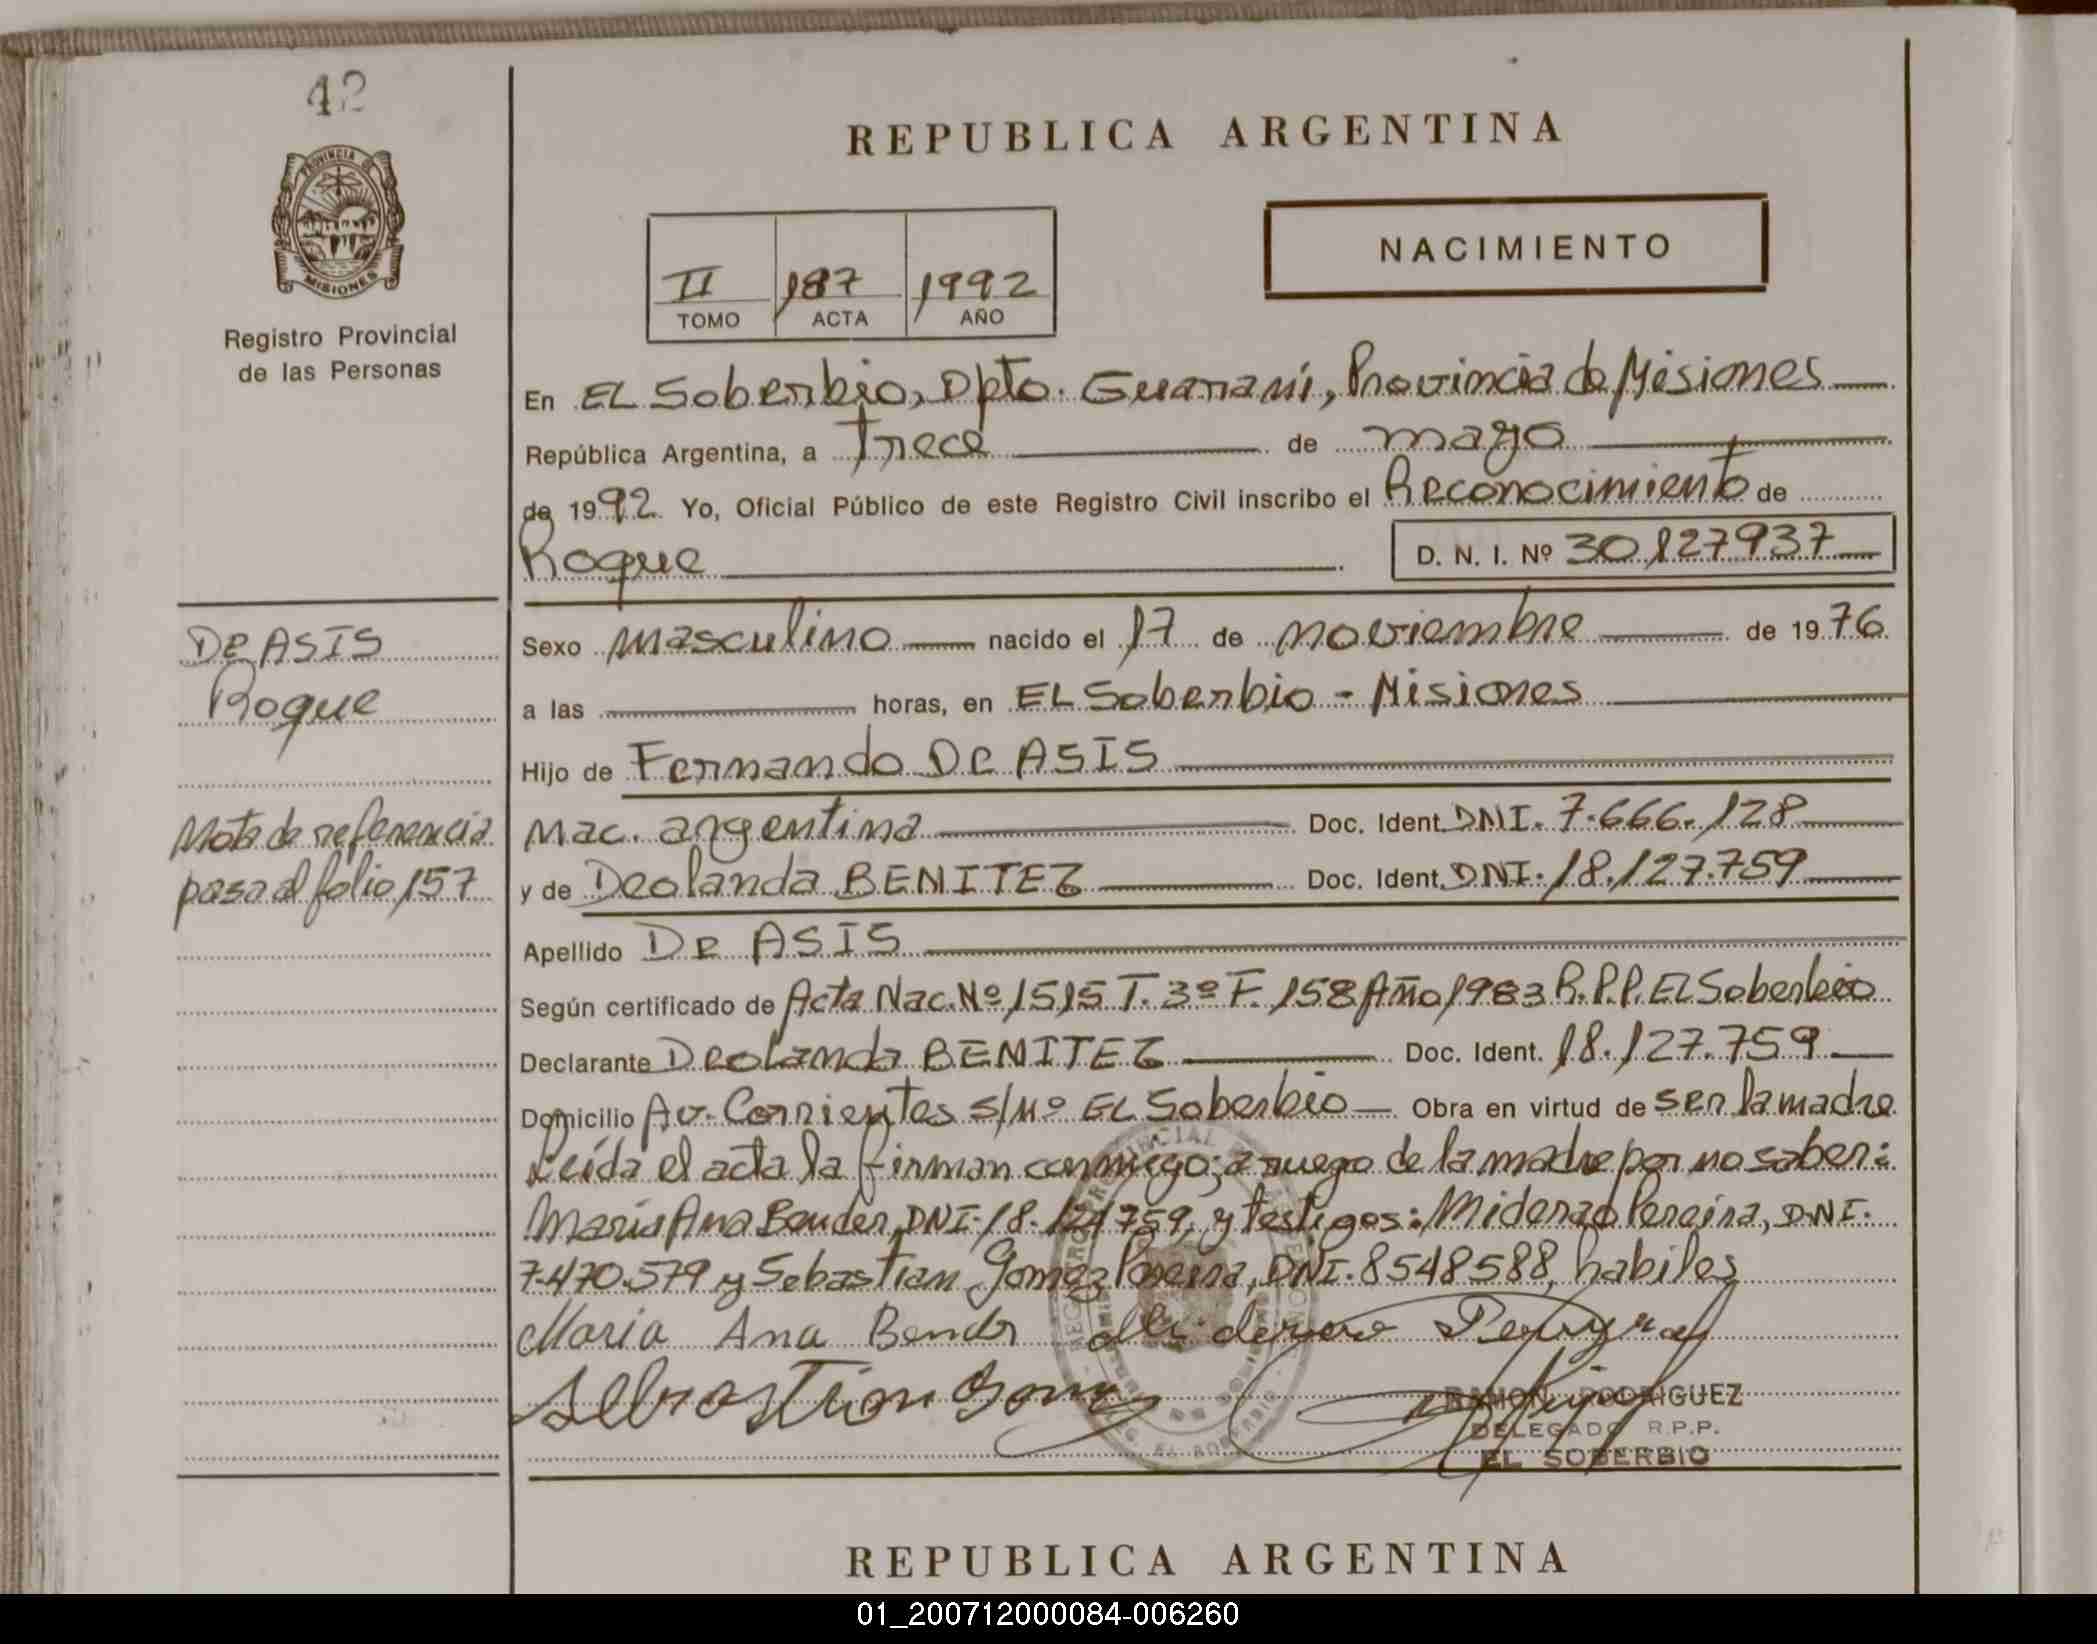 42
PROVINCIA DE
MISIONES
Registro Provincial
de las Personas
REPUBLICA ARGENTINA
NACIMIENTO
II 187 1992
TOMO ACTA AÑO
En EL Soberbio, Dpto. Guaraní, Provincia de Misiones
República Argentina, a Trece de mayo
de 1992 Yo, Oficial Público de este Registro Civil inscribo el Reconocimiento de
Roque D. N. I. Nº 30.127937
DE ASIS
Roque
Nota de referencia
pasa al folio 157
Sexo masculino nacido el 17 de noviembre de 1976
a las horas, en EL Soberbio - Misiones
Hijo de Fernando DE ASIS
Nac. argentina Doc. Ident. DNI. 7.666.128
y de Deolanda BENITEZ Doc. Ident. DNI. 18.127.759
Apellido DE ASIS
Según certificado de Acta Nac. Nº 1515 T. 3º F. 158 Año 1983 R.P.P. EL Soberbio
Declarante Deolanda BENITEZ Doc. Ident. 18.127.759
Domicilio Av. Corrientes s/Nº EL Soberbio Obra en virtud de ser la madre
Leída el acta la firman conmigo; a ruego de la madre por no saber:
María Ana Bender, DNI. 18. 759, y testigos: Miderao Pereira, DNI.
7.470.579 y Sebastian Gomez Pereira, DNI. 8548588, habiles
Maria Ana Bender
Sebastian Gomez
RAMON RODRIGUEZ
DELEGADO R.P.P.
EL SOBERBIO
REPUBLICA ARGENTINA
01_200712000084-006260